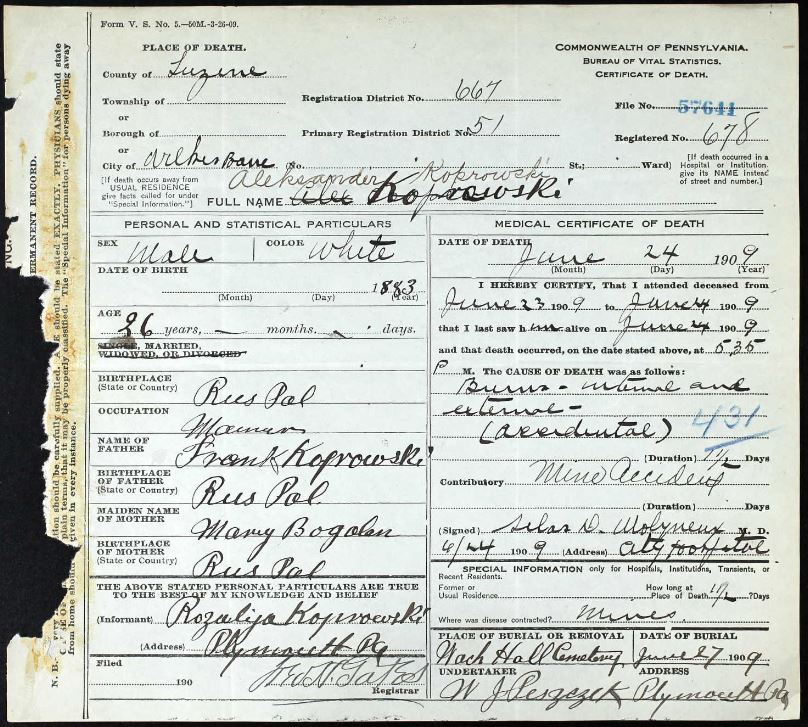 Form V. S. No. 5.—50M.-3-26-09.
PLACE OF DEATH.
COMMONWEALTH OF PENNSYLVANIA.
BUREAU OF VITAL STATISTICS.
CERTIFICATE OF DEATH.
County of Luzerne
Township of
or
Registration District No. 667
File No. 57641
Borough of
or
Primary Registration District No. 51
Registered No. 678
City of Wilkesbarre (No. St.; Ward)
[If death occurs away from USUAL RESIDENCE give facts called for under "Special Information."]
[If death occurred in a Hospital or Institution, give its NAME instead of street and number.]
Aleksander Koprowski
FULL NAME Alec Koprowski
PERSONAL AND STATISTICAL PARTICULARS
SEX Male COLOR White
DATE OF BIRTH 1883
(Month) (Day) (Year)
AGE 26 years, – months. days.
SINGLE, MARRIED,
WIDOWED, OR DIVORCED
BIRTHPLACE
(State or Country) Rus Pol
OCCUPATION
NAME OF
FATHER Frank Koprowski
BIRTHPLACE
OF FATHER
(State or Country) Rus Pol
MAIDEN NAME
OF MOTHER Mary
BIRTHPLACE
OF MOTHER
(State or Country) Rus Pol
THE ABOVE STATED PERSONAL PARTICULARS ARE TRUE
TO THE BEST OF MY KNOWLEDGE AND BELIEF
(Informant) Rozalija Koprowski
(Address) Plymouth Pa
Filed
190
Registrar
MEDICAL CERTIFICATE OF DEATH
DATE OF DEATH June 24 1909
(Month) (Day) (Year)
I HEREBY CERTIFY, That I attended deceased from
June 23 1909 to June 24 1909
that I last saw him alive on June 24 1909
and that death occurred, on the date stated above, at 5 35
P M. The CAUSE OF DEATH was as follows:
Burns – internal and
external –
(accidental) 431
(Duration) 1 1/2 Days
Contributory Mine Accident
(Duration) Days
(Signed) Silas D. Molyneux M. D.
6/24 1909 (Address) City Hospital
SPECIAL INFORMATION only for Hospitals, Institutions, Transients, or
Recent Residents.
Former or
Usual Residence
How long at
Place of Death 1 1/2 ? Days
Where was disease contracted? Mines
PLACE OF BURIAL OR REMOVAL DATE OF BURIAL
Cemetery June 27 1909
UNDERTAKER ADDRESS
W J Plymouth Pa
ERMANENT RECORD.